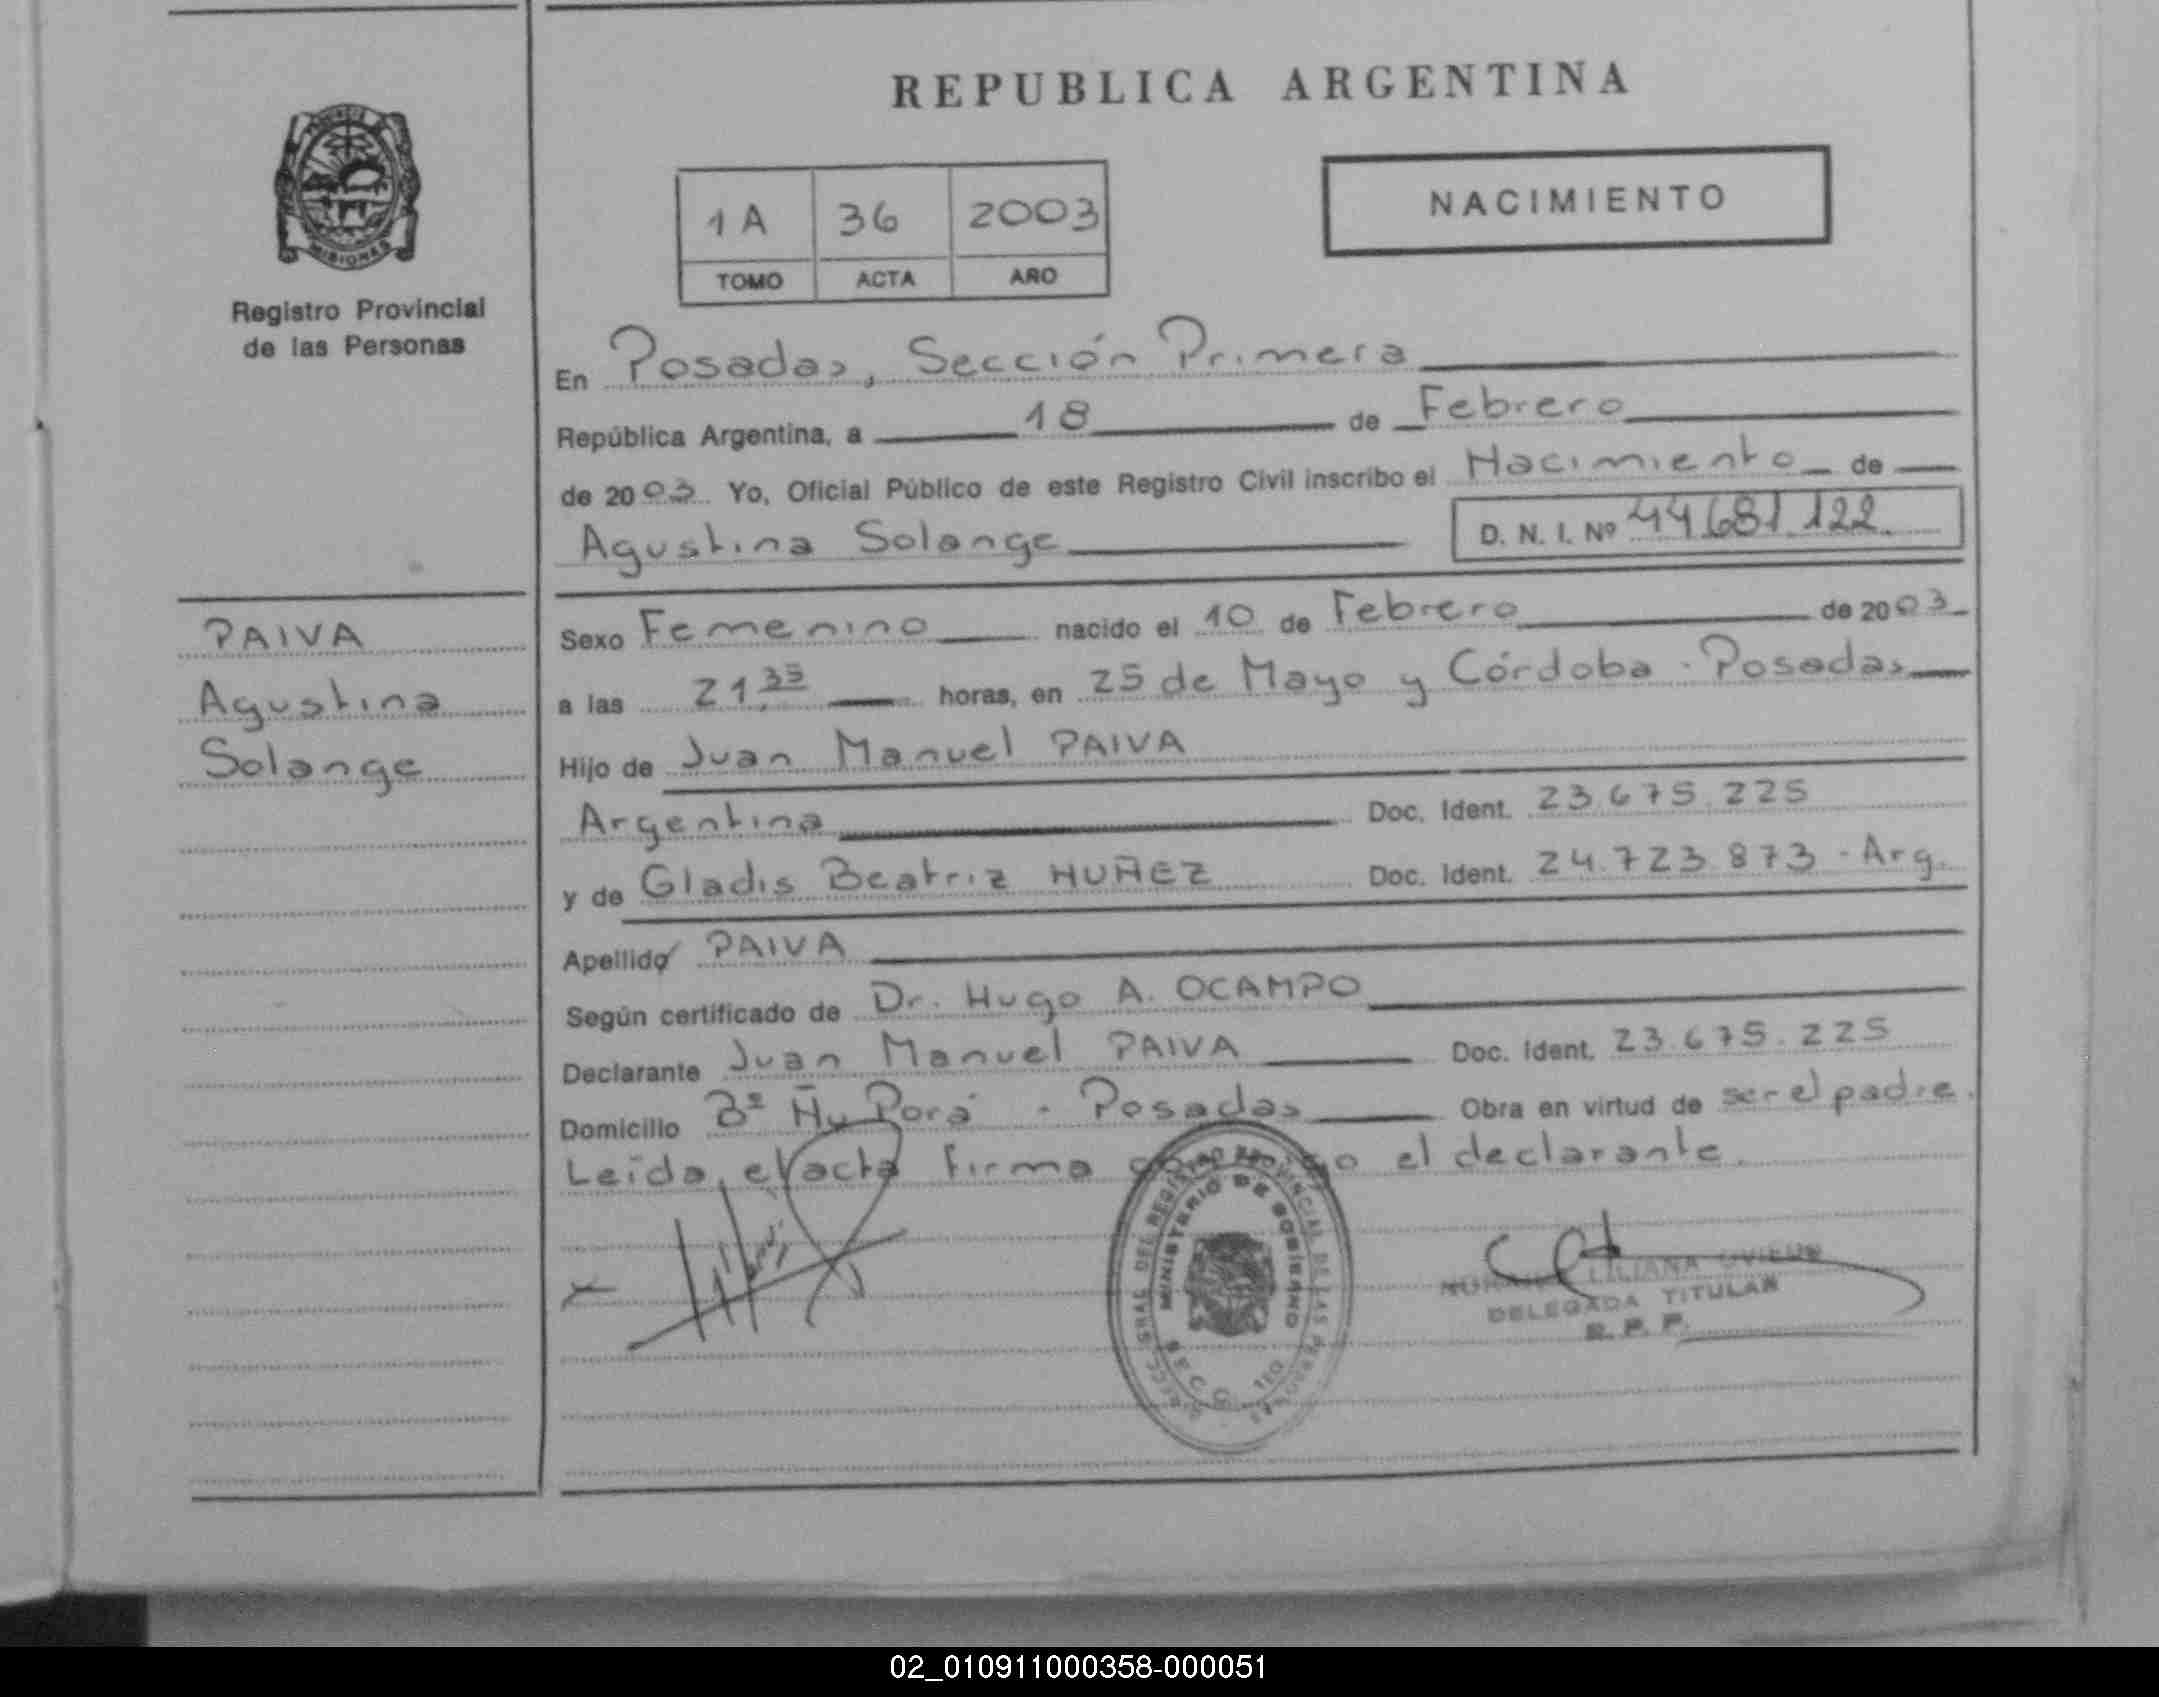 REPUBLICA ARGENTINA
MISIONES
Registro Provincial
de las Personas
1A 36 2003
TOMO ACTA AÑO
NACIMIENTO
En Posadas, Sección Primera
República Argentina, a 18 de Febrero
de 2003 Yo, Oficial Público de este Registro Civil inscribo el Nacimiento de
Agustina Solange D. N. I. Nº 44.681.122
PAIVA
Agustina
Solange
Sexo Femenino nacido el 10 de Febrero de 2003
a las 21.35 horas, en 25 de Mayo y Córdoba - Posadas
Hijo de Juan Manuel PAIVA
Argentina Doc. Ident. 23.675.225
y de Gladis Beatriz NUÑEZ Doc. Ident. 24.723.873 - Arg.
Apellido PAIVA
Según certificado de Dr. Hugo A. OCAMPO
Declarante Juan Manuel PAIVA Doc. Ident. 23.675.225
Domicilio Bº Ñu Porá - Posadas Obra en virtud de ser el padre.
Leída el acta firma el declarante.
MINISTERIO DE GOBIERNO
LILIANA OVIEDO
DELEGADA TITULAR
R. P. P.
02_010911000358-000051